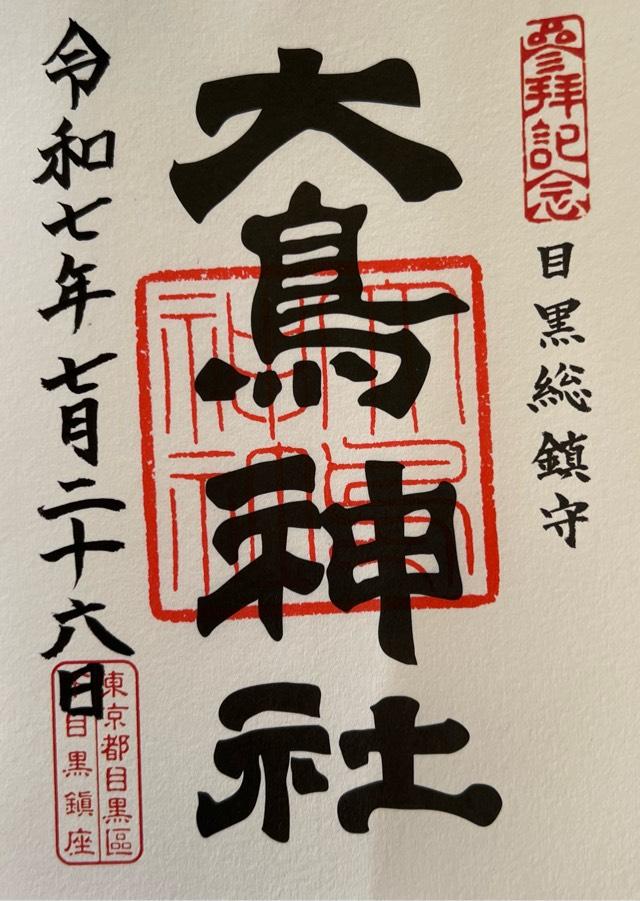 參拝記念
目黒総鎮守
大鳥神社
令和七年七月二十六日
東京都目黒區
下目黒鎮座